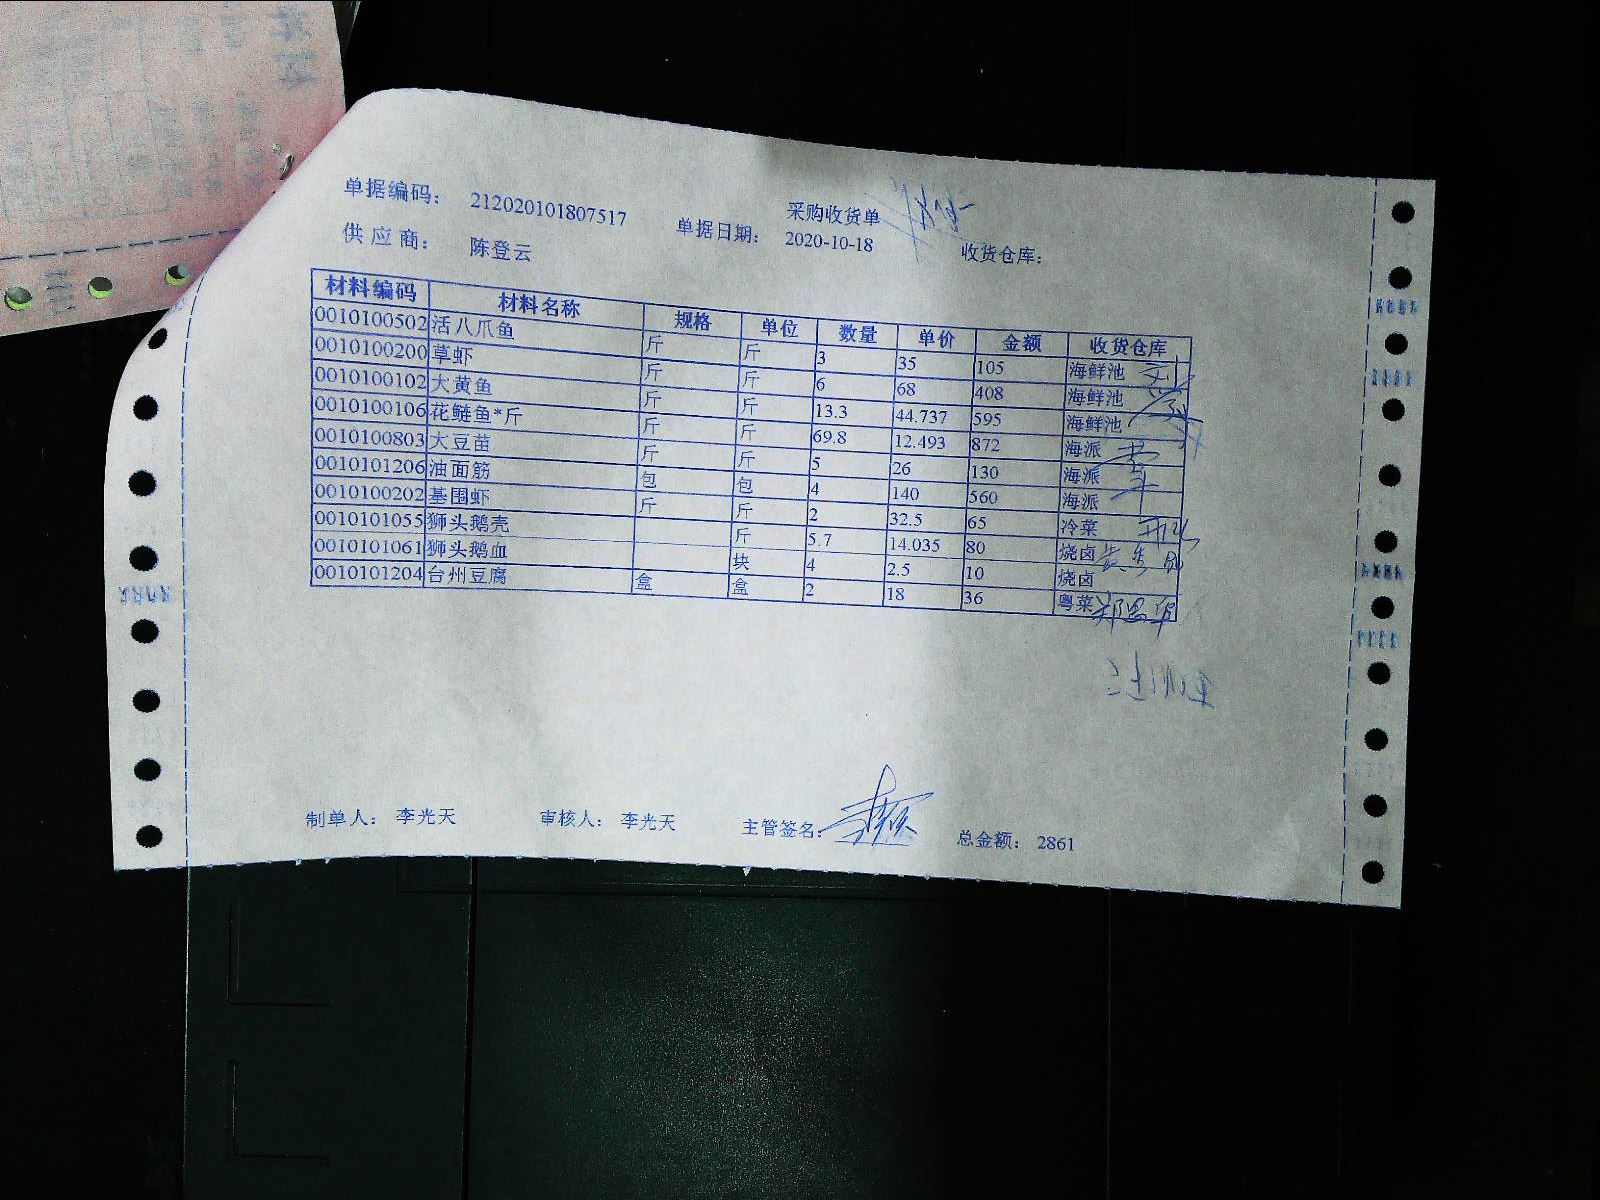 采购收货单
单据编码： 212020101807517 单据日期： 2020-10-18 收货仓库：
供应商： 陈登云
材料编码 材料名称 规格 单位 数量 单价 金额 收货仓库
0010100502 活八爪鱼 斤 斤 3 35 105 海鲜池
0010100200 草虾 斤 斤 6 68 408 海鲜池
0010100102 大黄鱼 斤 斤 13.3 44.737 595 海鲜池
0010100106 花鲢鱼*斤 斤 斤 69.8 12.493 872 海派
0010100803 大豆苗 斤 斤 5 26 130 海派
0010101206 油面筋 包 包 4 140 560 海派
0010100202 基围虾 斤 斤 2 32.5 65 冷菜
0010101055 狮头鹅壳 斤 5.7 14.035 80 烧卤
0010101061 狮头鹅血 块 4 2.5 10 烧卤
0010101204 台州豆腐 盒 盒 2 18 36 粤菜
制单人： 李光天 审核人： 李光天 主管签名： 总金额： 2861